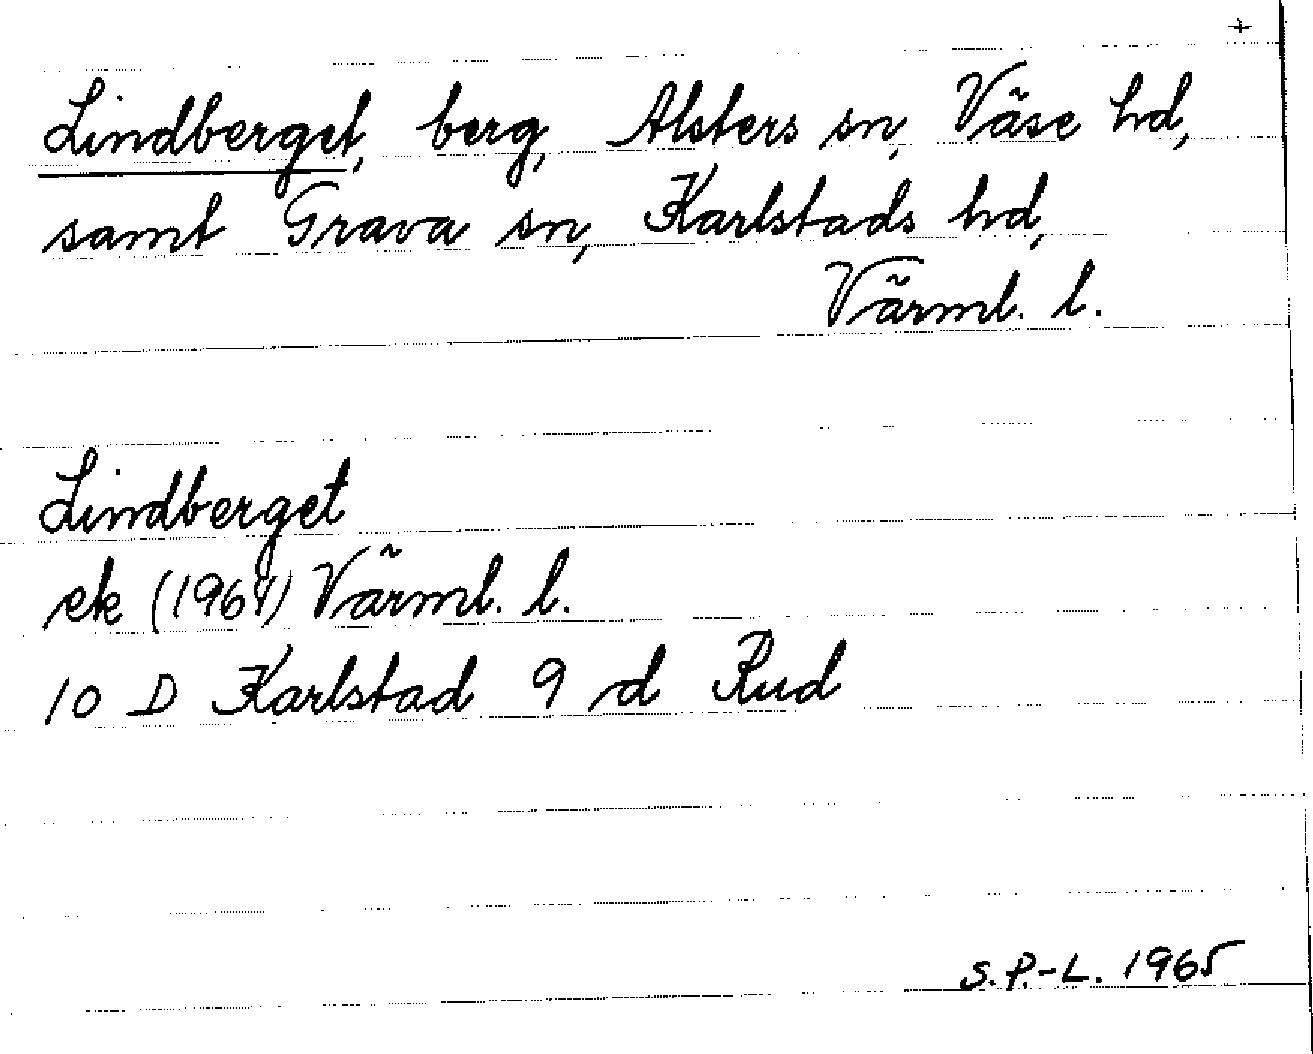 +
Lindberget, berg, Alsters sn, Väse hd,
samt Grava sn, Karlstads hd,
Värml. l.
Lindberget
ek (1964) Värml. l.
10 D Karlstad 9 d Rud
S.P.-L. 1965